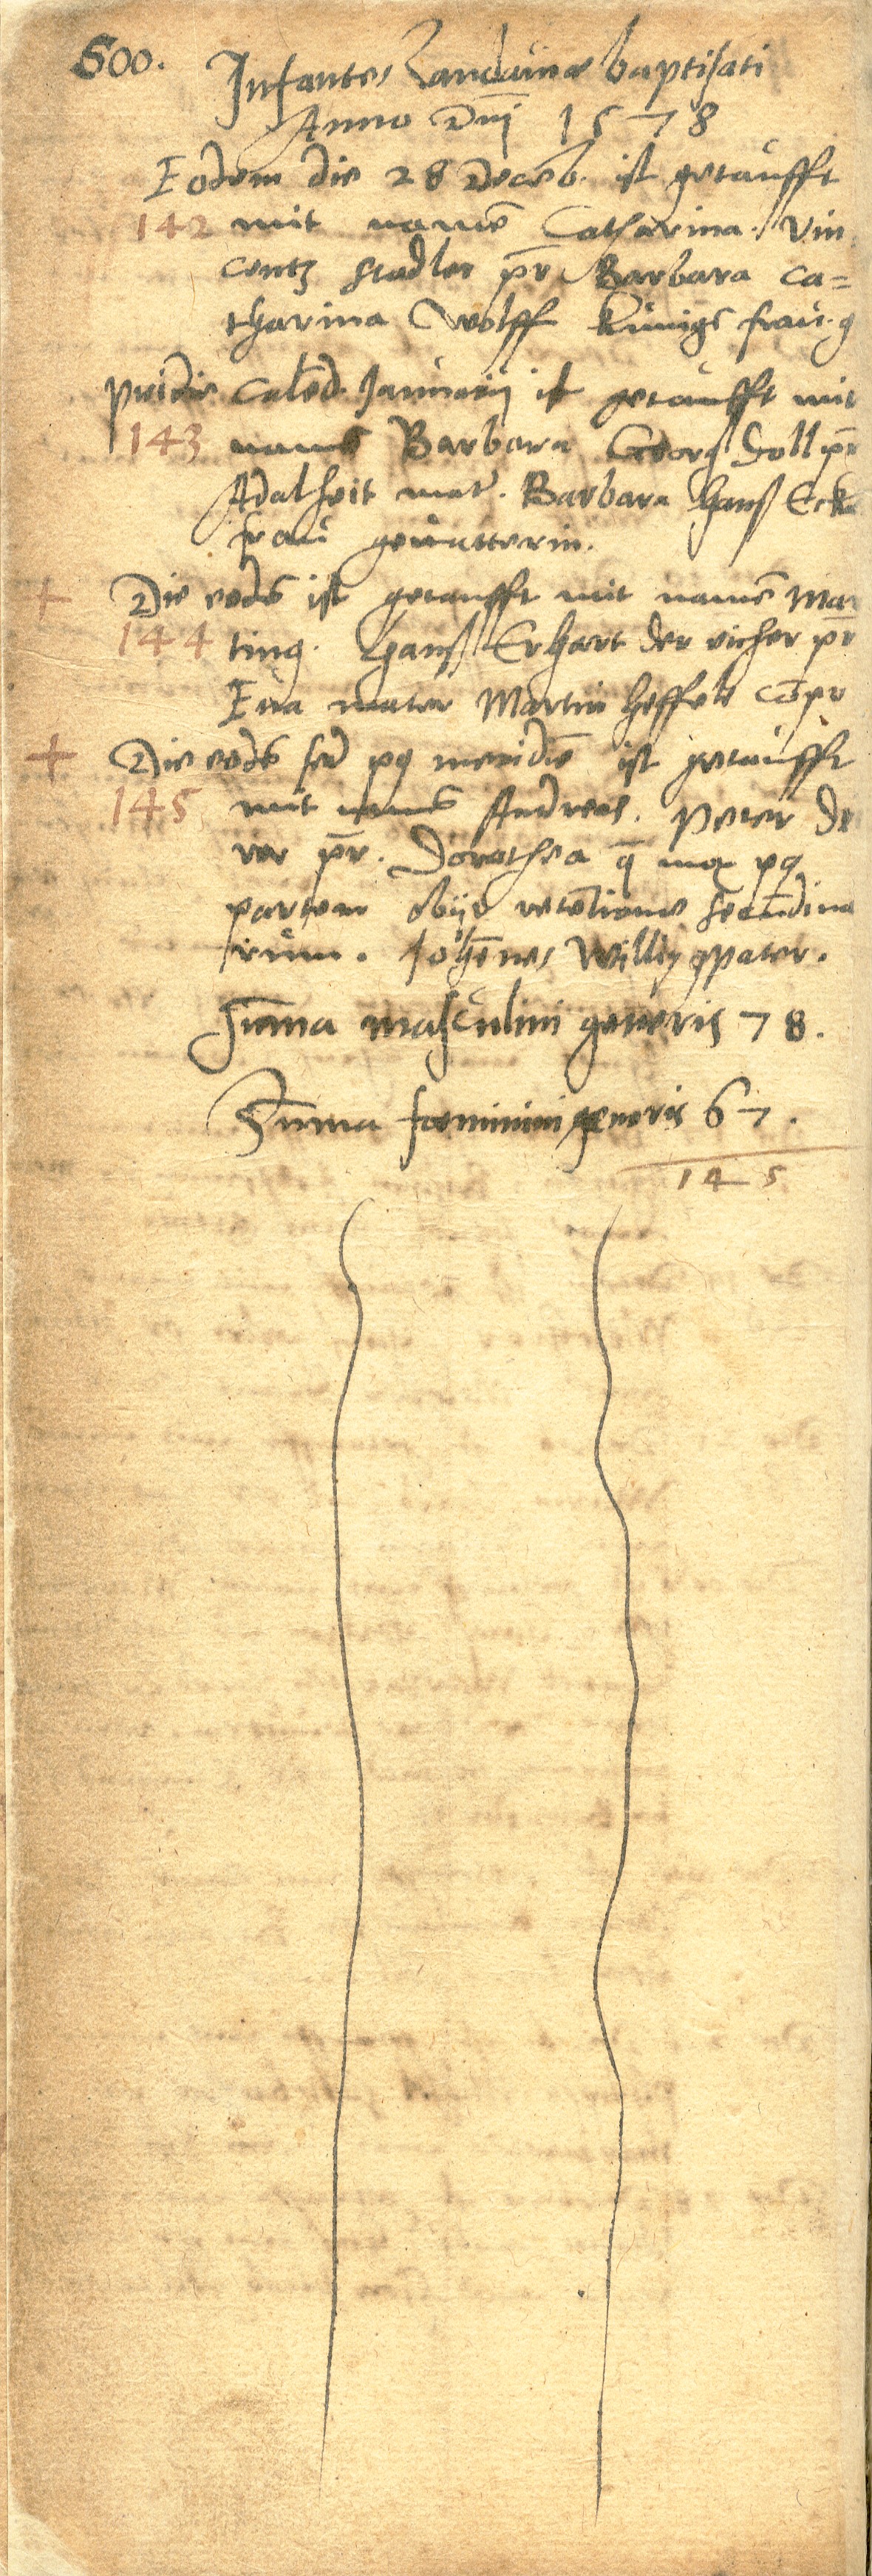 500. Infantes Landauiae baptisati
Anno Dnj 1578
Eodem die 28 Deceb. ist getaufft
142 mit namē Catharina. Vin
centz Stadler pr̄ Barbara Ca=
tharina Wolff Kunigs frau. g
Pridie Calēd. Januarij ist getaufft mit
143 namē Barbara Georg Doll pr̄
Adalheit mat. Barbara Hanß Eck
frau geuatterin.
+ Die eodē ist getaufft mit namē Mar
144 ting. Hanß Erhart der vicher pr̄
Eua mater Martin Heffeli cōpr
+ Die eodē sed pq meridiē ist getaufft
145 mit namē Andreas. Peter Dr
rer pr̄. Dorothea q̄ mox pq
partem obijt retētione secūdina
rum. Johēnes Willig gpater.
Suma masculini generis 78.
Suma foeminini generis 67.
145